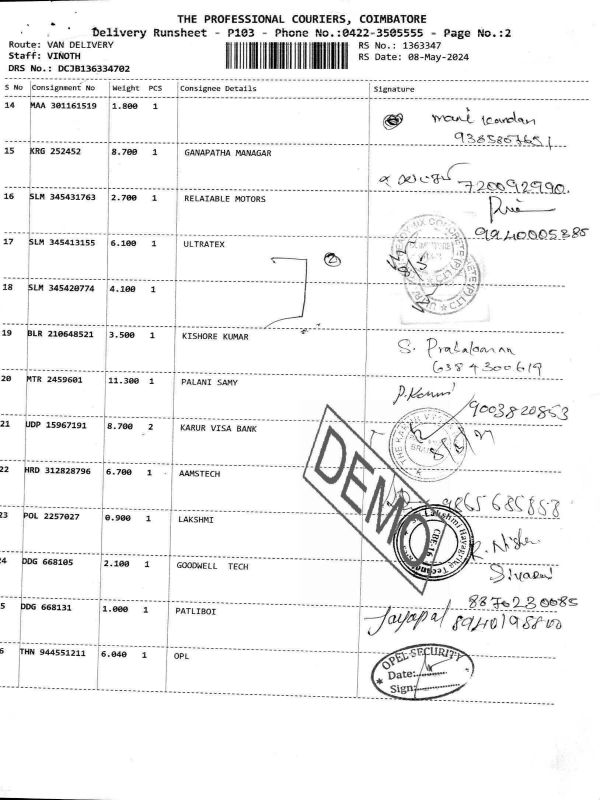 THE PROFESSIONAL COURIERS, COIMBATORE
Delivery Runsheet - P103 - Phone No.:0422-3505555 - Page No.:2
Route: VAN DELIVERY
RS No.: 1363347
Staff: VINOTH
RS Date: 08-May-2024
DRS No.: DCJB136334702
S No Consignment No Weight PCS Consignee Details Signature
14 MAA 301161519 1.800 1
15 KRG 252452 8.700 1 GANAPATHA MANAGAR
720092990.
16 SLM 345431763 2.700 1 RELAIABLE MOTORS
9940005885
17 SLM 345413155 6.100 1 ULTRATEX
2
18 SLM 345420774 4.100 1
19 BLR 210648521 3.500 1 KISHORE KUMAR
6384300619
20 MTR 2459601 11.300 1 PALANI SAMY
9003820853
21 UDP 15967191 8.700 2 KARUR VISA BANK
22 HRD 312828796 6.700 1 AAMSTECH
9865685858
DEMO
23 POL 2257027 0.900 1 LAKSHMI
CBE-16
24 DDG 668105 2.100 1 GOODWELL TECH
8870230085
5 DDG 668131 1.000 1 PATLIBOI
Jayapal 8940198800
6 THN 944551211 6.040 1 OPL
OPEL SECURITY
Date:
Sign: